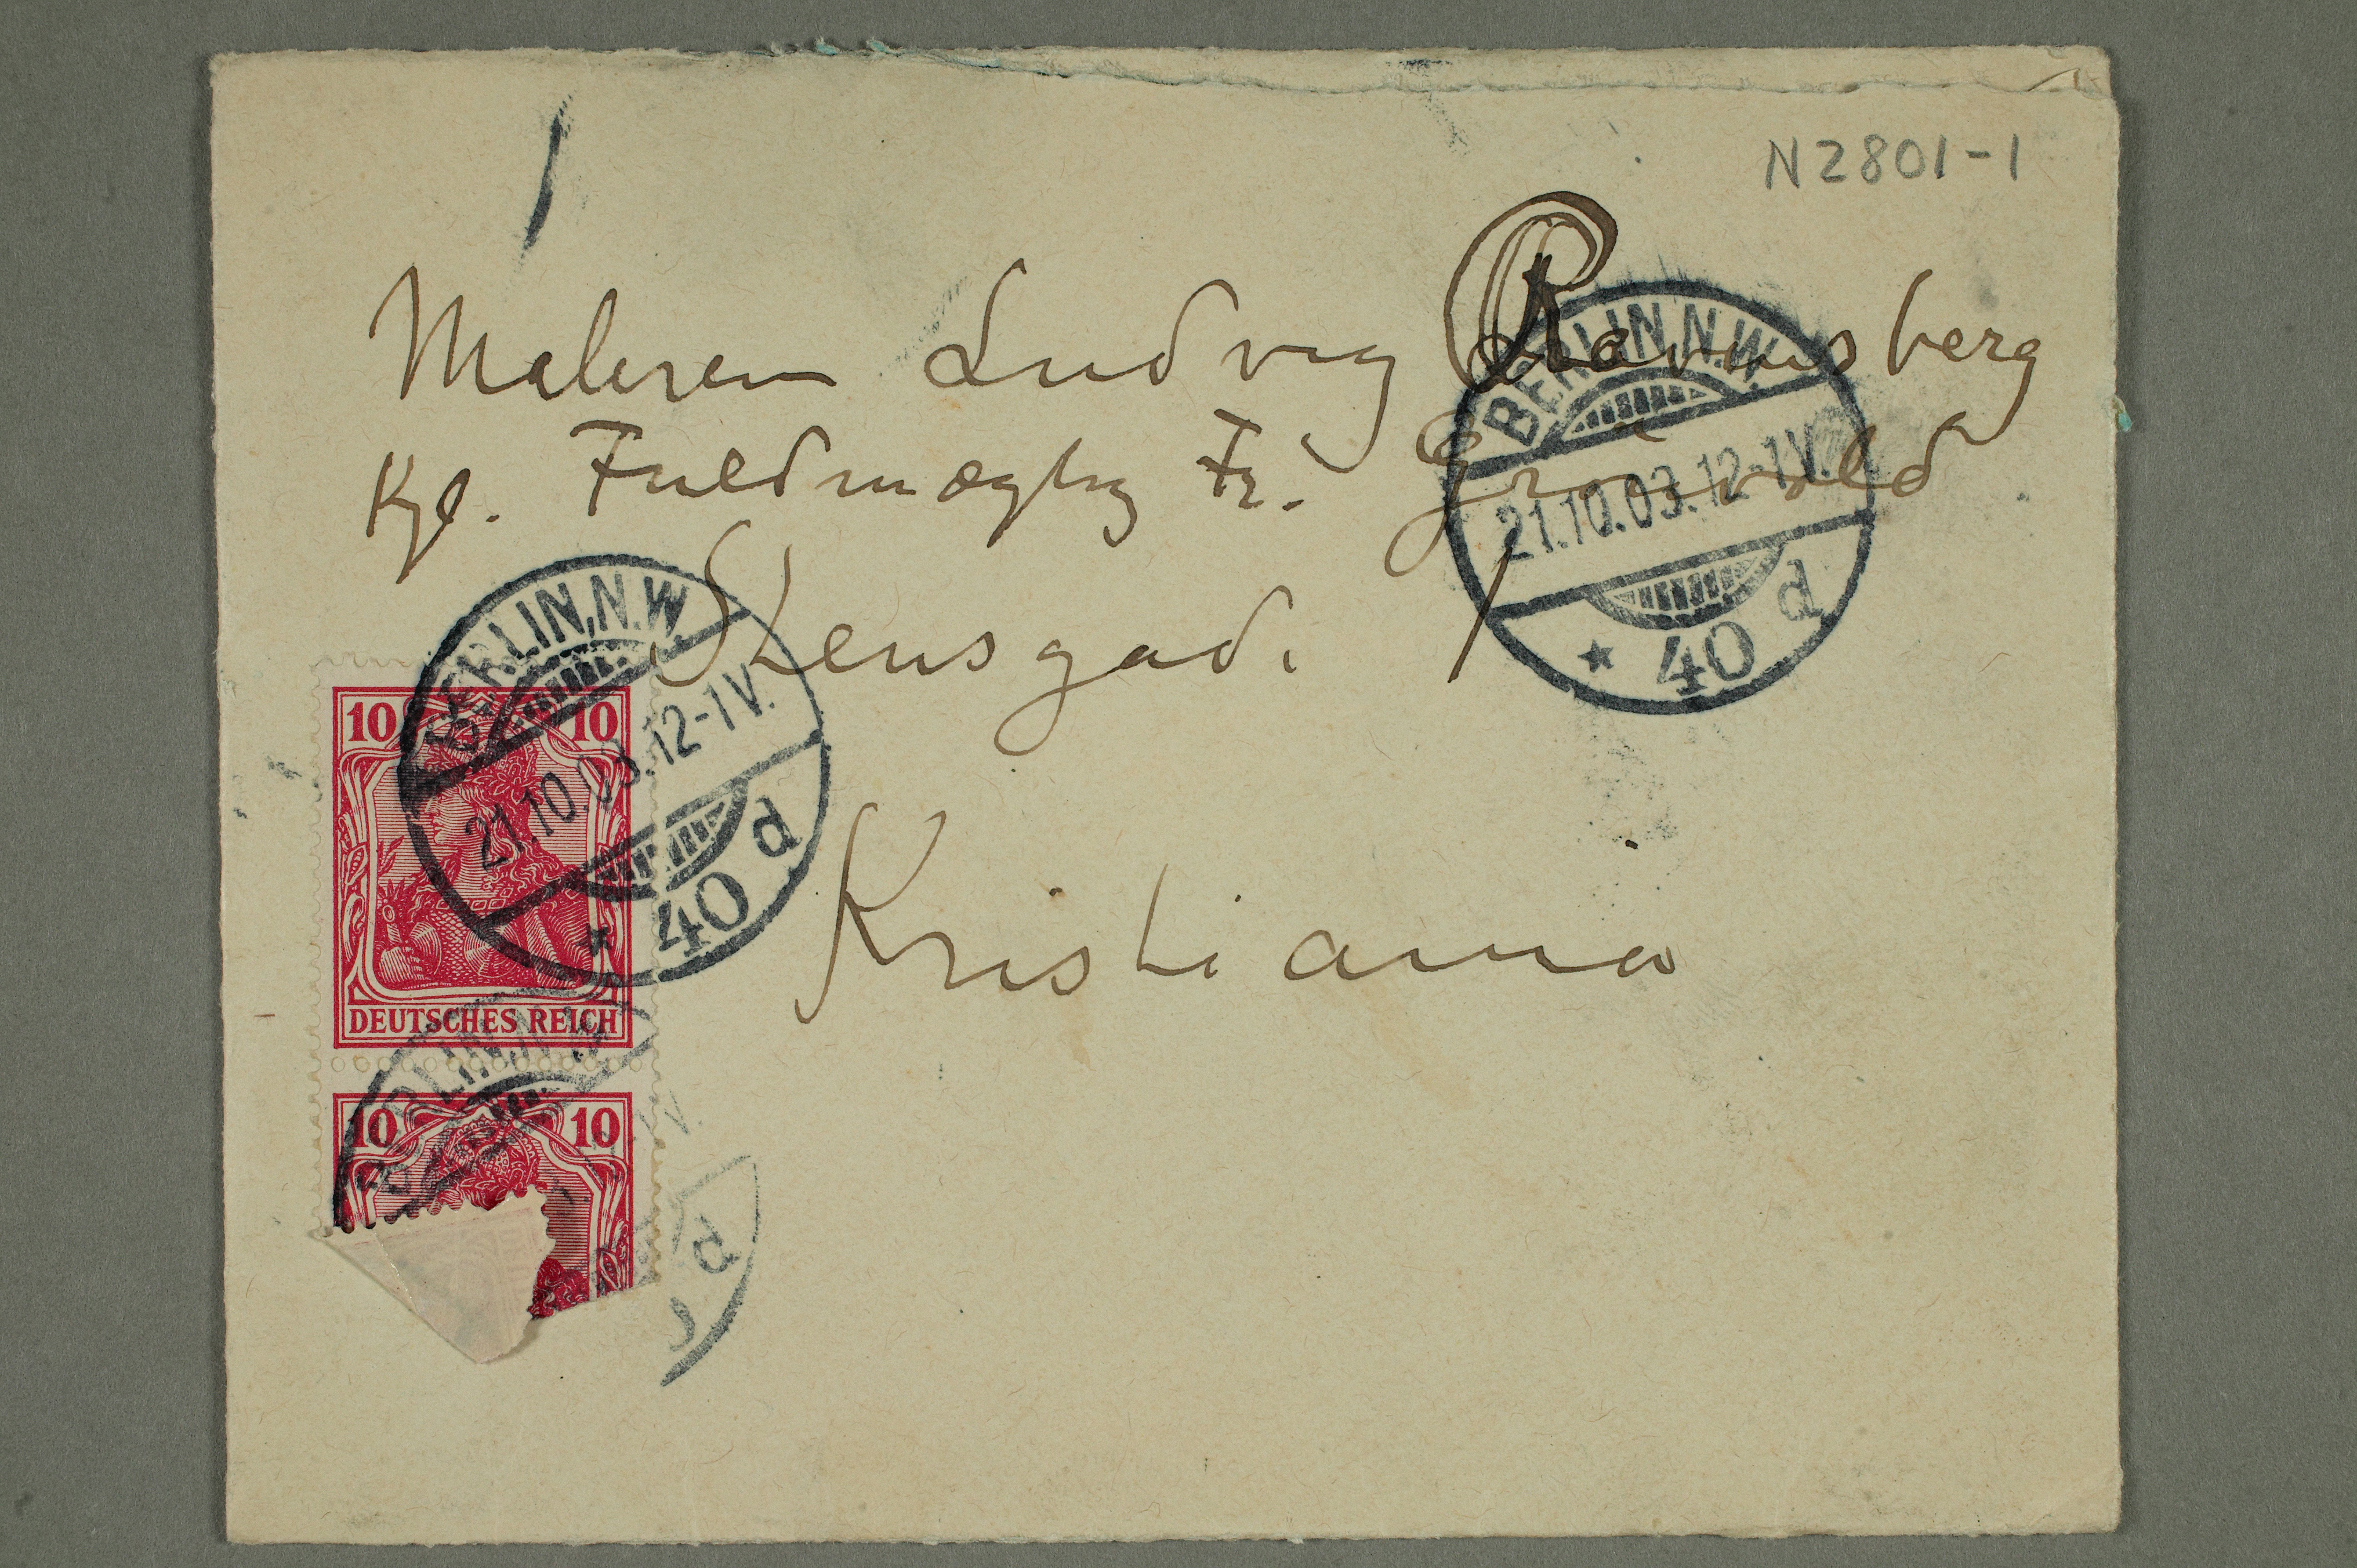 N2801-1
Maleren Ludvig Ravensberg
Kgl. Fuldmægtig Fr. Grønvold
Stensgade 1
Kristiania
BERLIN,N.W.
21.10.03.12-1V.
* 40 d
BERLIN,N.W.
21.10.03.12-1V.
* 40 d
10 10
DEUTSCHES REICH
BERLIN,N.W.
10 10
V.
d